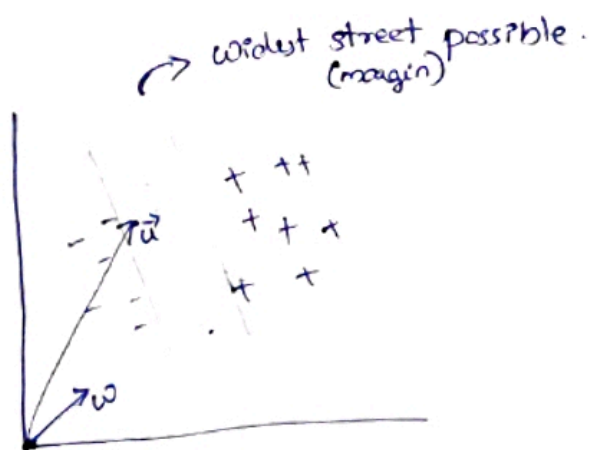 widest street possible.
(margin)
+ ++
+ + +
+ +
- -
-
- -
-
u⃗
w